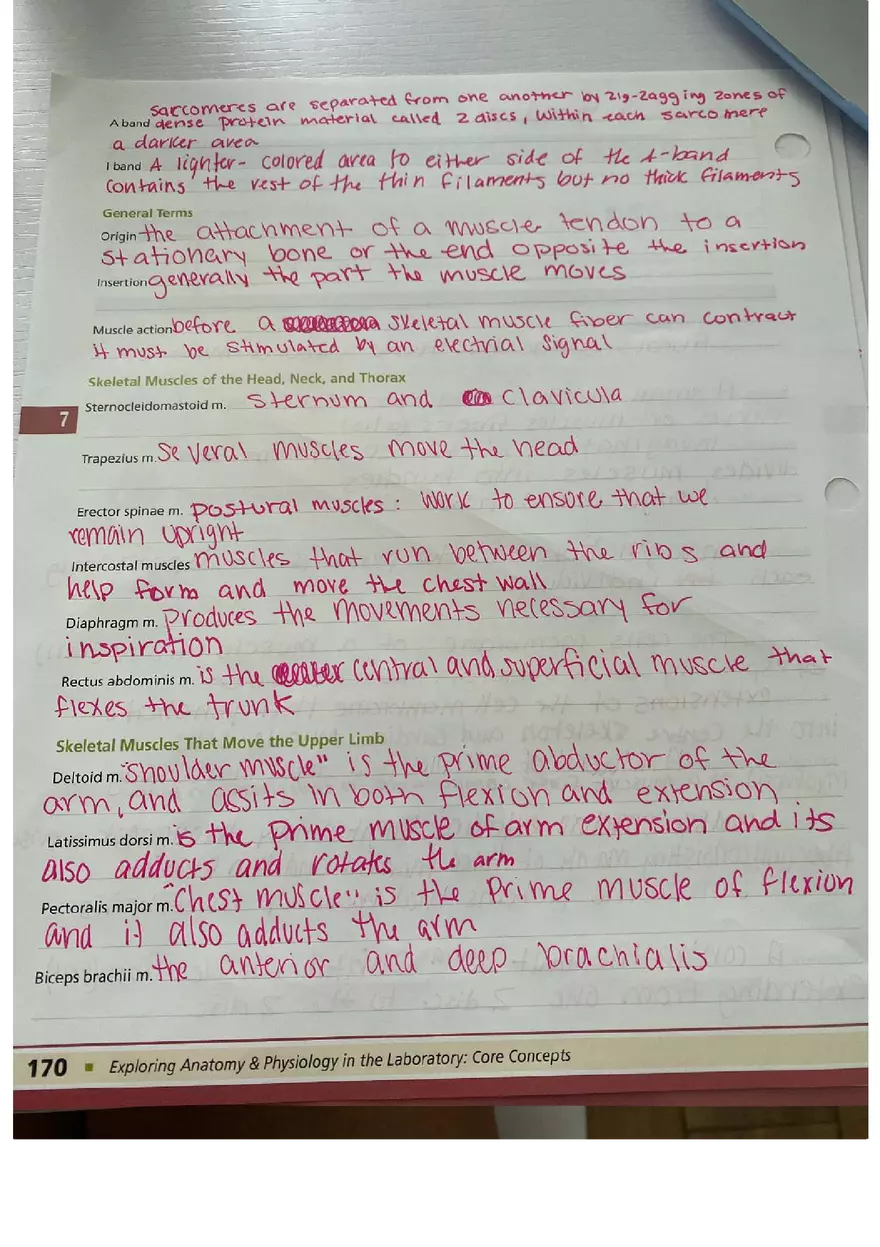 sarcomeres are separated from one another by zig-zagging zones of
A band dense protein material called z discs, within each sarcomere
a darker area
I band A lighter-colored area to either side of the A-band
contains the rest of the thin filaments but no thick filaments
General Terms
Origin the attachment of a muscle tendon to a
stationary bone or the end opposite the insertion
Insertion generally the part the muscle moves
Muscle action before a skeletal muscle fiber can contract
it must be stimulated by an electrial signal
Skeletal Muscles of the Head, Neck, and Thorax
Sternocleidomastoid m. sternum and clavicula
7
Trapezius m. Several muscles move the head
Erector spinae m. postural muscles: work to ensore that we
remain upright
Intercostal muscles muscles that run between the ribs and
help form and move the chest wall
Diaphragm m. produces the movements necessary for
inspiration
Rectus abdominis m. is the central and superficial muscle that
flexes the trunk
Skeletal Muscles That Move the Upper Limb
Deltoid m. "shoulder muscle" is the prime abductor of the
arm, and assits in both flexion and extension
Latissimus dorsi m. is the prime muscle of arm extension and its
also adducts and rotates the arm
Pectoralis major m. "Chest muscle" is the prime muscle of flexion
and it also adducts the arm
Biceps brachii m. the anterior and deep brachialis
170 ▪ Exploring Anatomy & Physiology in the Laboratory: Core Concepts